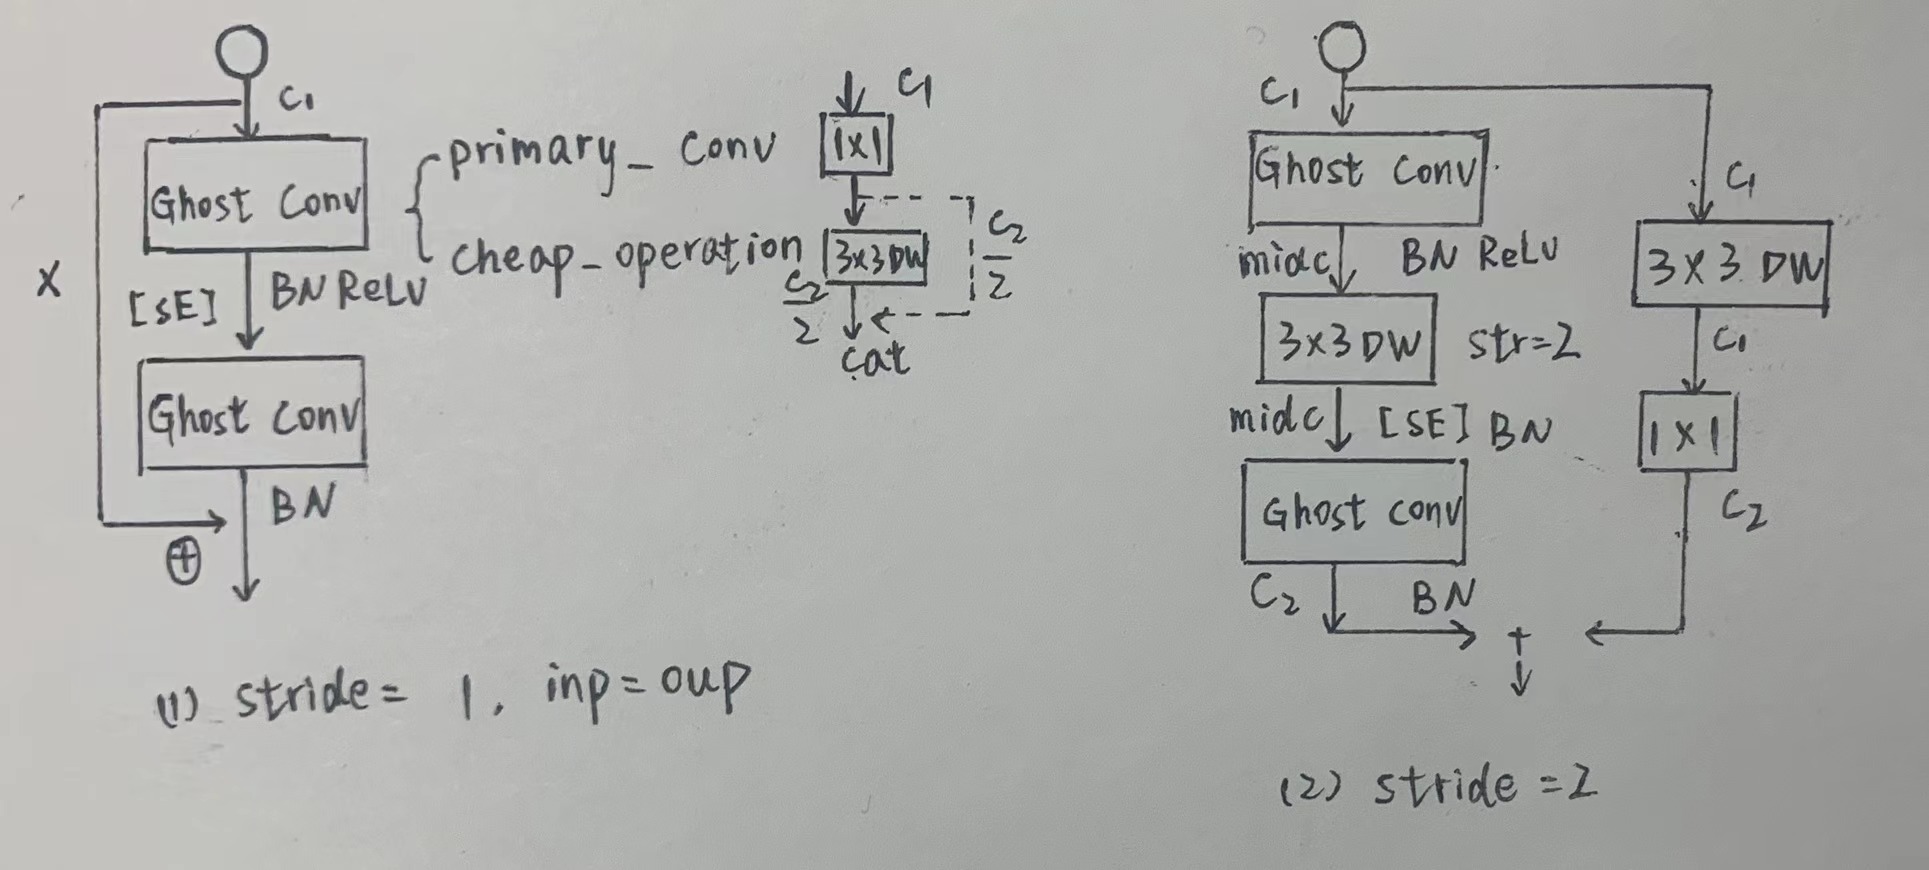 C1
Ghost Conv
X
[SE] BN ReLU
Ghost Conv
BN
⊕
(1) stride = 1, inp = oup
primary_conv
cheap_operation
C1
1x1
3x3 DW
C2/2
C2/2
cat
C1
Ghost Conv
midc BN ReLU
3x3 DW str=2
midc [SE] BN
Ghost conv
C2 BN
+
C1
3x3 DW
C1
1x1
C2
(2) stride = 2